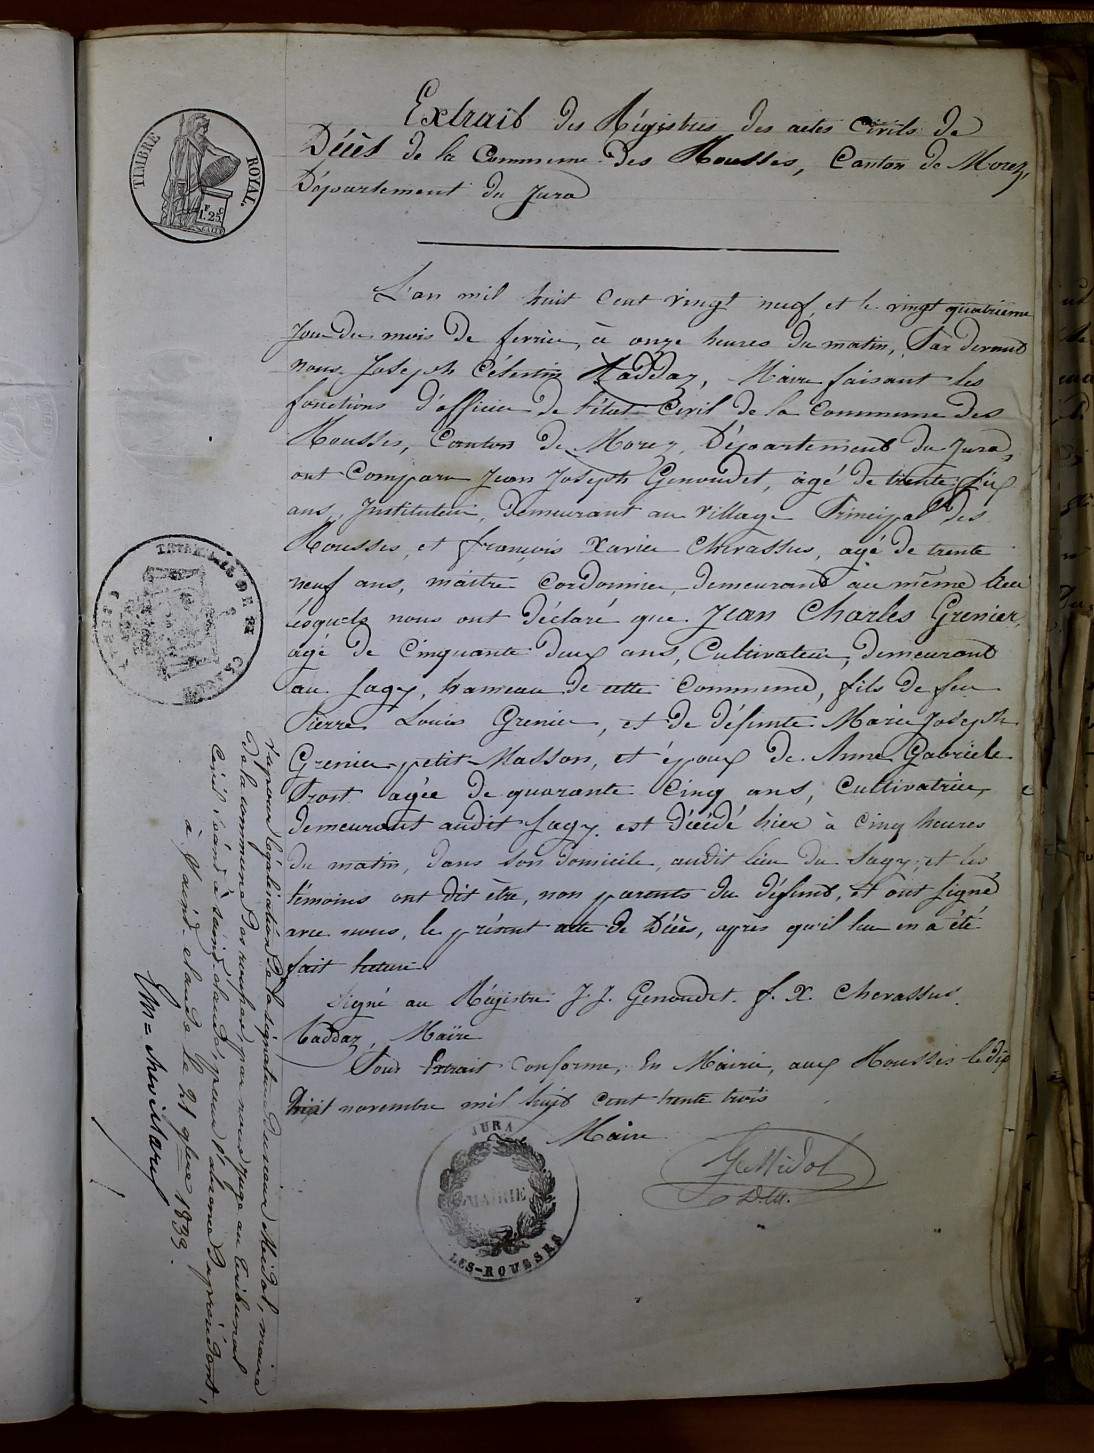 TIMBRE ROYAL
1F. 25C
Extrait des Régistres des actes Civils de
Décès de la Commune des Rousses, Canton de Morez,
Département du Jura
L'an mil huit Cent vingt neuf, et le vingt quatrième
Jour du mois de fevrier, à onze heures du matin, Par devant
nous Joseph Célestin Maire faisant les
fonctions d'officier de l'état Civil de la Commune des
Rousses, Canton de Morez, Département du Jura,
ont Comparu Jean Joseph Genoudet, agé de trente six
ans, Instituteur, demeurant au village Principal des
Rousses, et françois Xavier Chevassus, agé de trente
neuf ans, maitre Cordonnier, demeurant au même lieu
lesquels nous ont déclaré que Jean Charles Grenier,
agé de Cinquante deux ans, Cultivateur, demeurant
au Sagy, hameau de cette Commune, fils de feu
Pierre Louis Grenier, et de défunte Marie Joseph
Grenier petit Masson, et époux de Anne Gabriele
Prost agée de quarante Cinq ans, Cultivatrice,
demeurant audit Sagy, est Décédé hier à Cinq heures
du matin, dans son domicile, audit lieu du Sagy, et les
témoins ont dit être, non parents du défunt, et ont signé
avec nous, le présent acte de Décès, après qu'il leur en a été
fait lecture.
Signé au Régistre J. J. Genoudet. f. X. Chevassus.
Maire
Pour Extrait Conforme, En Mairie, aux Rousses le dix
huit novembre mil huit Cent trente trois
Maire
JURA
MAIRIE
LES-ROUSSES
TRIBUNAL DE
Vu pour légalisation de la signature du sieur Midol, maire
de la commune des rousses, par nous juge au tribunal
Civil séant à saint claude, pour l'absence du président,
à saint claude le 21 9bre 1833.